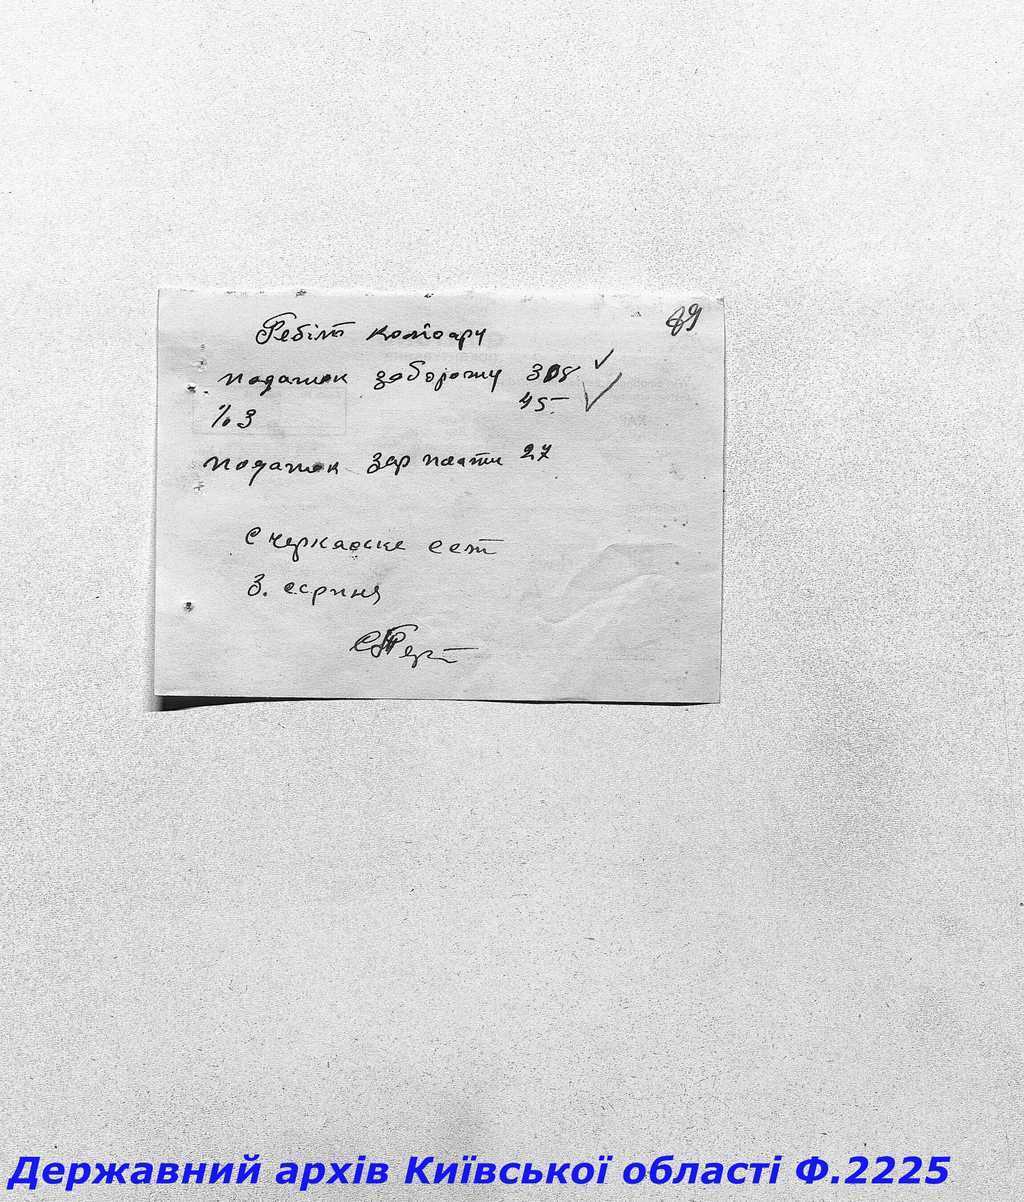 89
Ребіт
податок заборожу 308
45-
% 3
податок зар плати 27
с черкаске
3. серпня
Державний архів Київської області Ф.2225